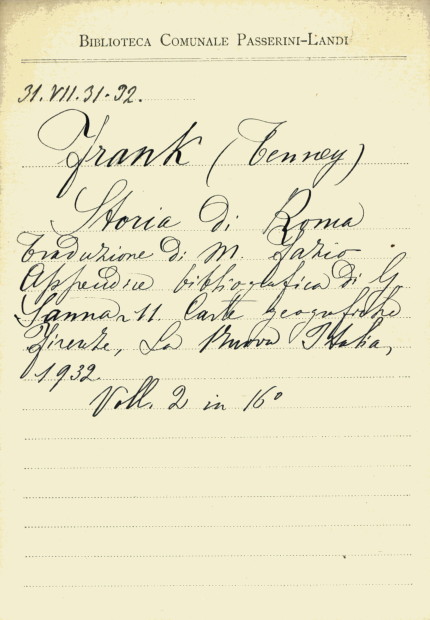 BIBLIOTECA COMUNALE PASSERINI-LANDI
31.VII.31-32.
Frank (Tenney)
Storia di Roma
Traduzione di M. Fazio.
Appendice bibliografica di G
Sanna - 11. Carte geografiche
Firenze, La Nuova Italia,
1932.
Voll. 2 in 16º